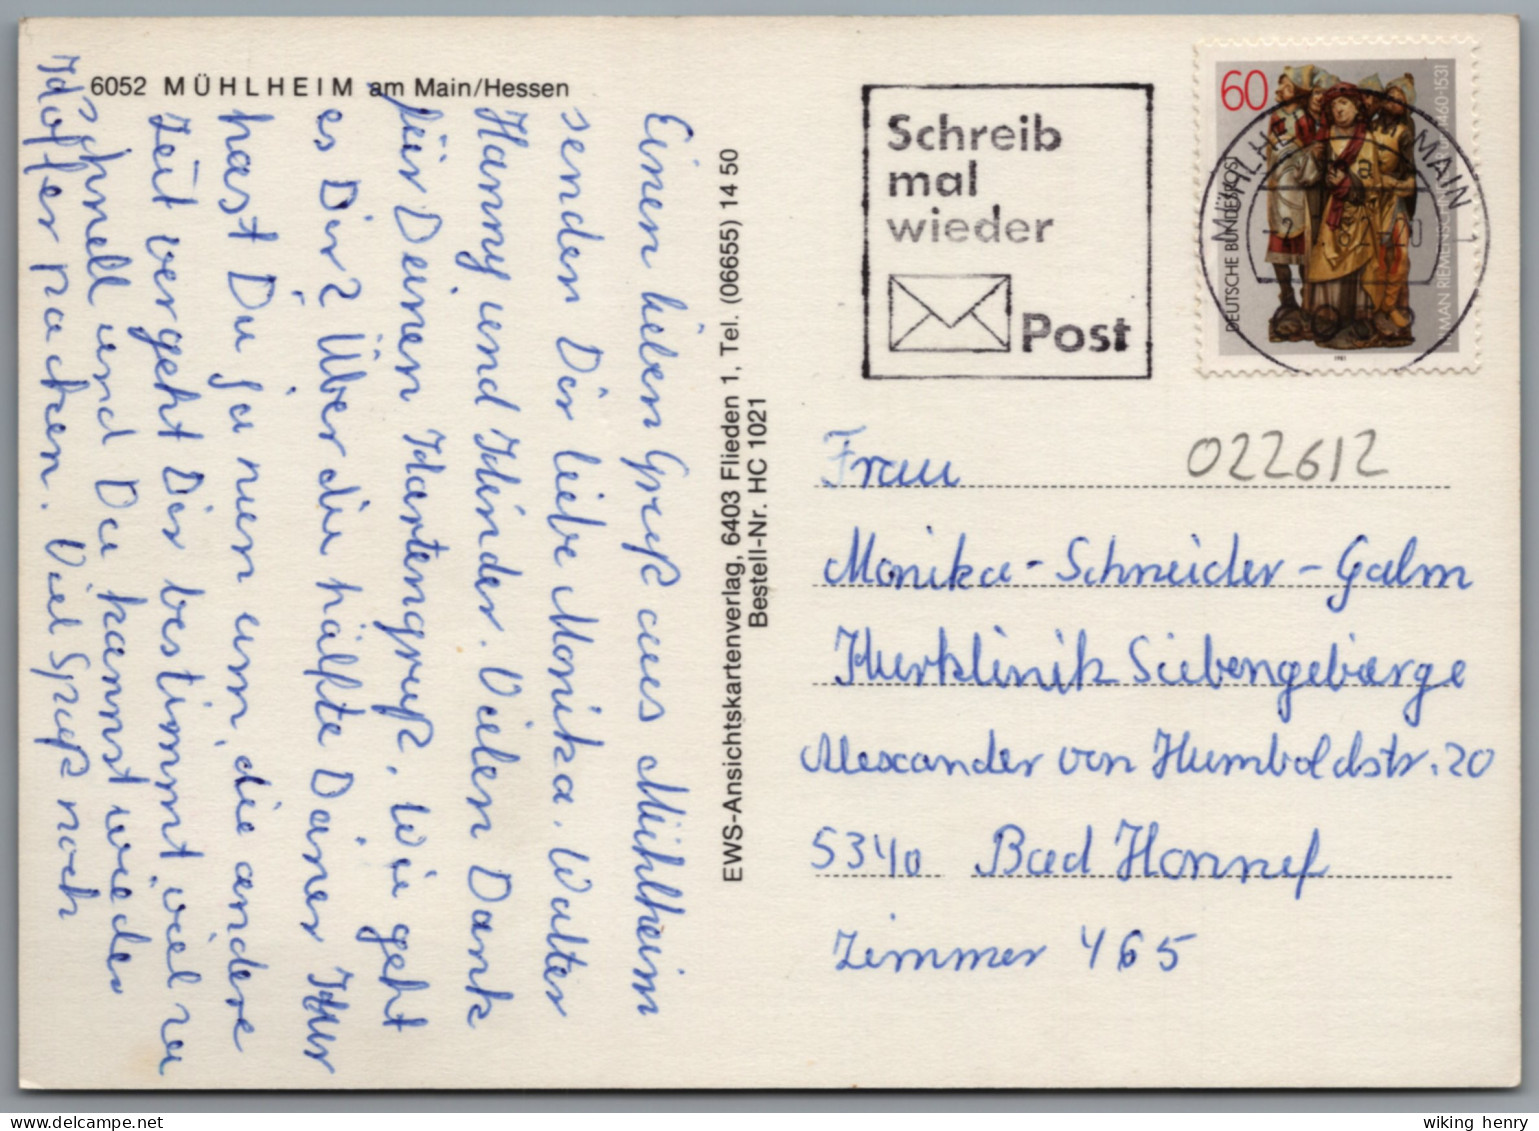 6052 MÜHLHEIM am Main/Hessen
Einen lieben Gruß aus Mühlheim
senden Dir liebe Monika. Walter
Hanny und Kinder. Vielen Dank
für Deinen Kartengruß. Wie geht
es Dir? Über die hälfte Deiner Kur
hast Du ja nun um, die andere
Zeit vergeht Dir bestimmt viel zu
schnell und Du kannst wieder
Koffer packen. Viel Spaß noch
EWS-Ansichtskartenverlag, 6403 Flieden 1, Tel. (06655) 14 50
Bestell-Nr. HC 1021
Schreib
mal
wieder
Post
60
DEUTSCHE BUNDESPOST
TILMAN RIEMENSCHNEIDER 1460-1531
1981
MÜHLHEIM AM MAIN
a
022612
Frau
Monika-Schneider-Galm
Kurklinik Siebengebirge
Alexander von Humboldstr. 20
5340 Bad Honnef
Zimmer 465
wiking henry